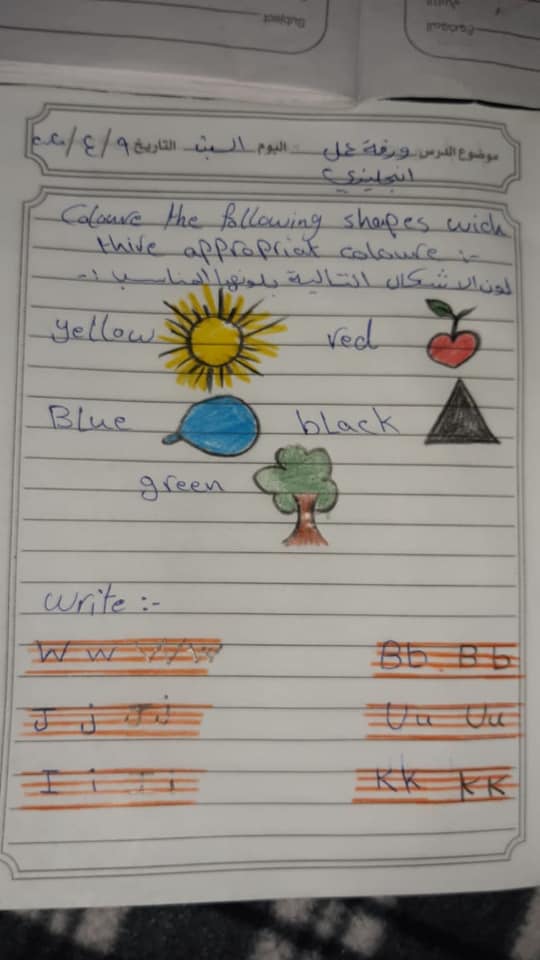 Subject
الموضوع
موضوع الدرس ورقة عمل اليوم السبت التاريخ ٩/٤/٢٠٢٢
انجليزي
Coloure the following shapes wich
thire appropriat coloure :-
لون الاشكال التالية بلونها المناسب :-
yellow red
Blue black
green
write :-
W w W w Bb Bb
J j J j Uu Uu
I i I i Kk KK